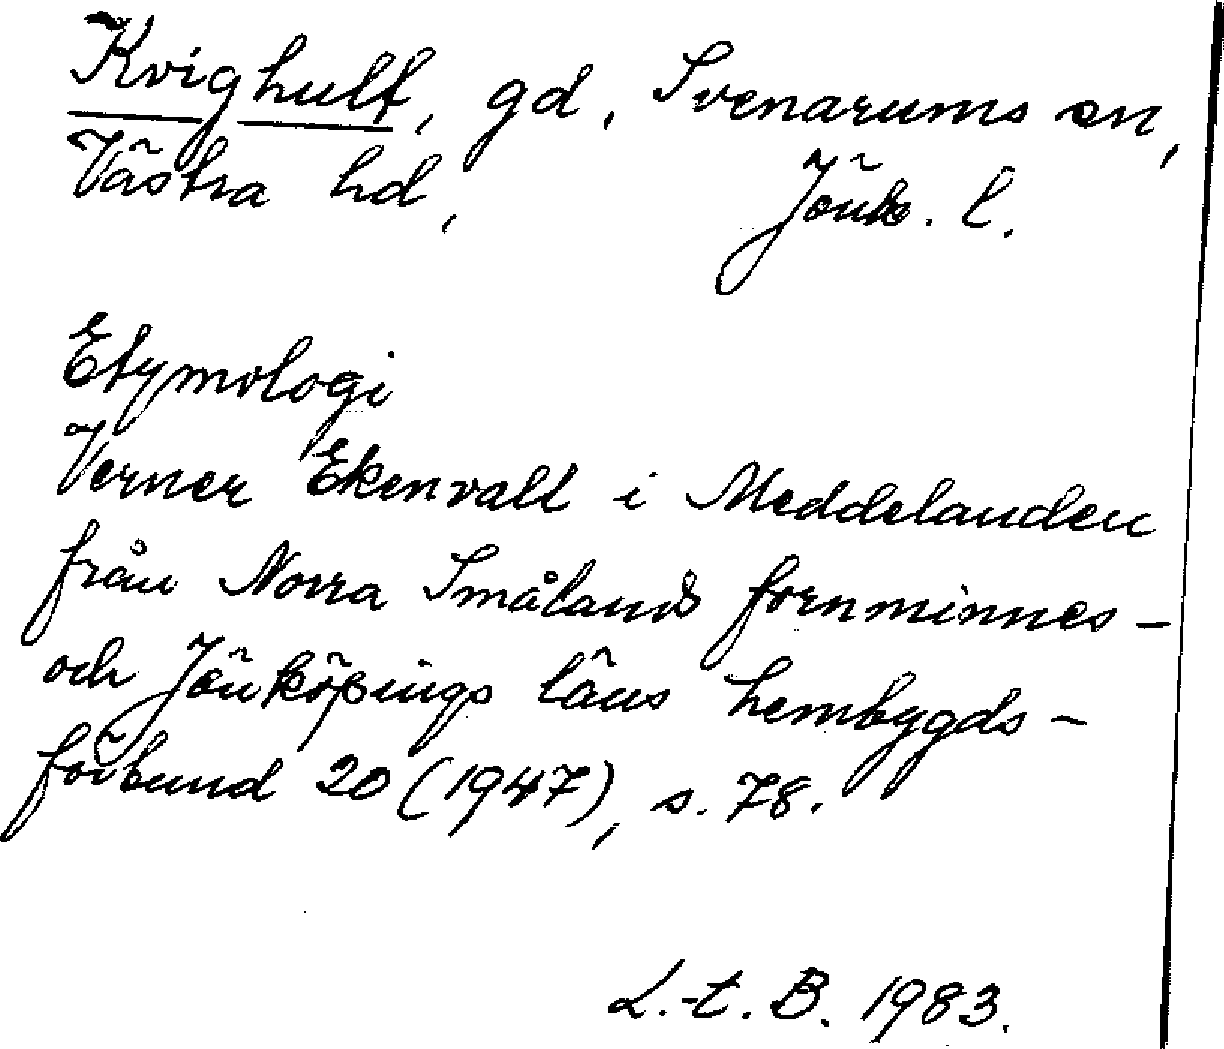 Kvighult, gd, Svenarums sn,
Västra hd, Jönk. l.
Etymologi
Verner Ekenvall i Meddelanden
från Norra Smålands fornminnes-
och Jönköpings läns hembygds-
förbund 20 (1947), s. 78.
L.-t. B. 1983.